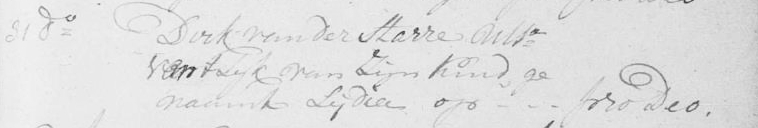 31 do Dirk van der Starre
van't Lijk van Zijn kind, ge
naamt Lydia op - - - pro Deo.